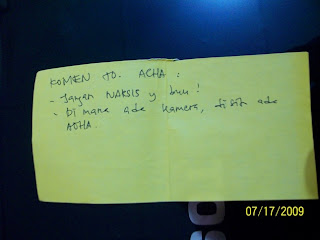 KOMEN to. ACHA :
- Jangan NAKSIS y buu!
- Di mana ada kamera, disitu ada
ACHA.
07/17/2009